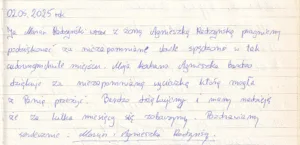 02.05.2025 rok.
Ja Marcin Radzyński wraz z żoną Agnieszką Radzyńską pragniemy
podziękować za niezapomniane chwile spędzone w tak
cudownym miejscu. Moja kochana Agnieszka bardzo
dziękuje za niezapomnianą wycieczkę którą mogła
z Panią przeżyć. Bardzo dziękujemy i mamy nadzieję
że za kilka miesięcy się zobaczymy. Pozdrawiamy
serdecznie. Marcin i Agnieszka